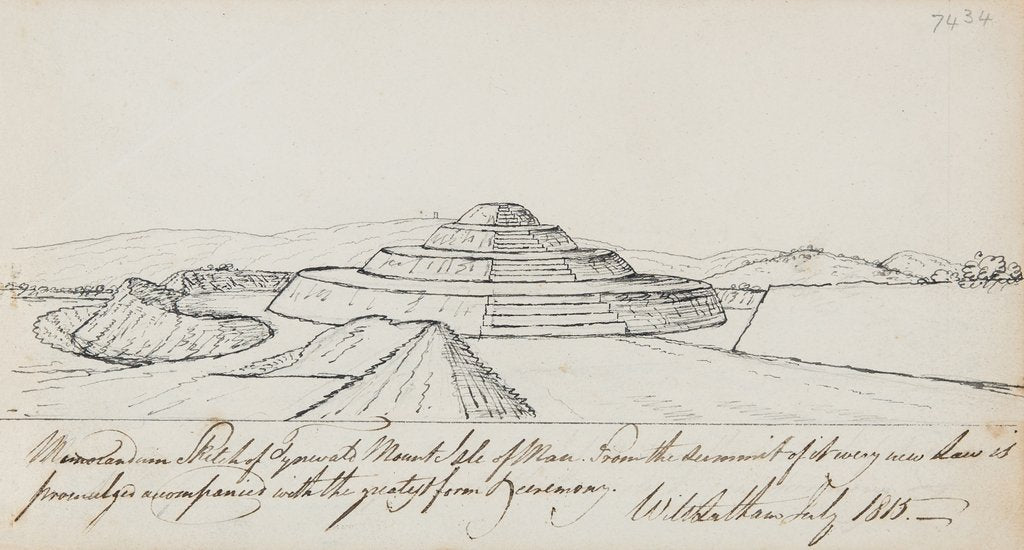 7434
Memorandum Sketch of Tynwald Mount Isle of Man. From the summit of it every new Law is
promulged accompanied with the greatest form & ceremony.
Will Latham July 1815.